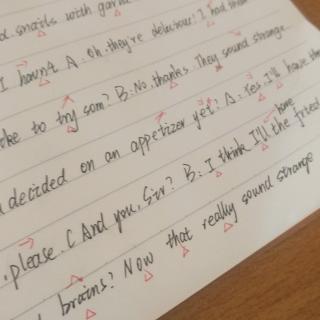 snails with garlic
I haven't A: Oh. they're delicious! I had them
like to try som? B: No, thanks. They sound strange.
decided on an appetizer yet? A: Yes. I'll have the
please. (And you, Sir? B: I think I'll have the fried
brains? Now that really sound strange